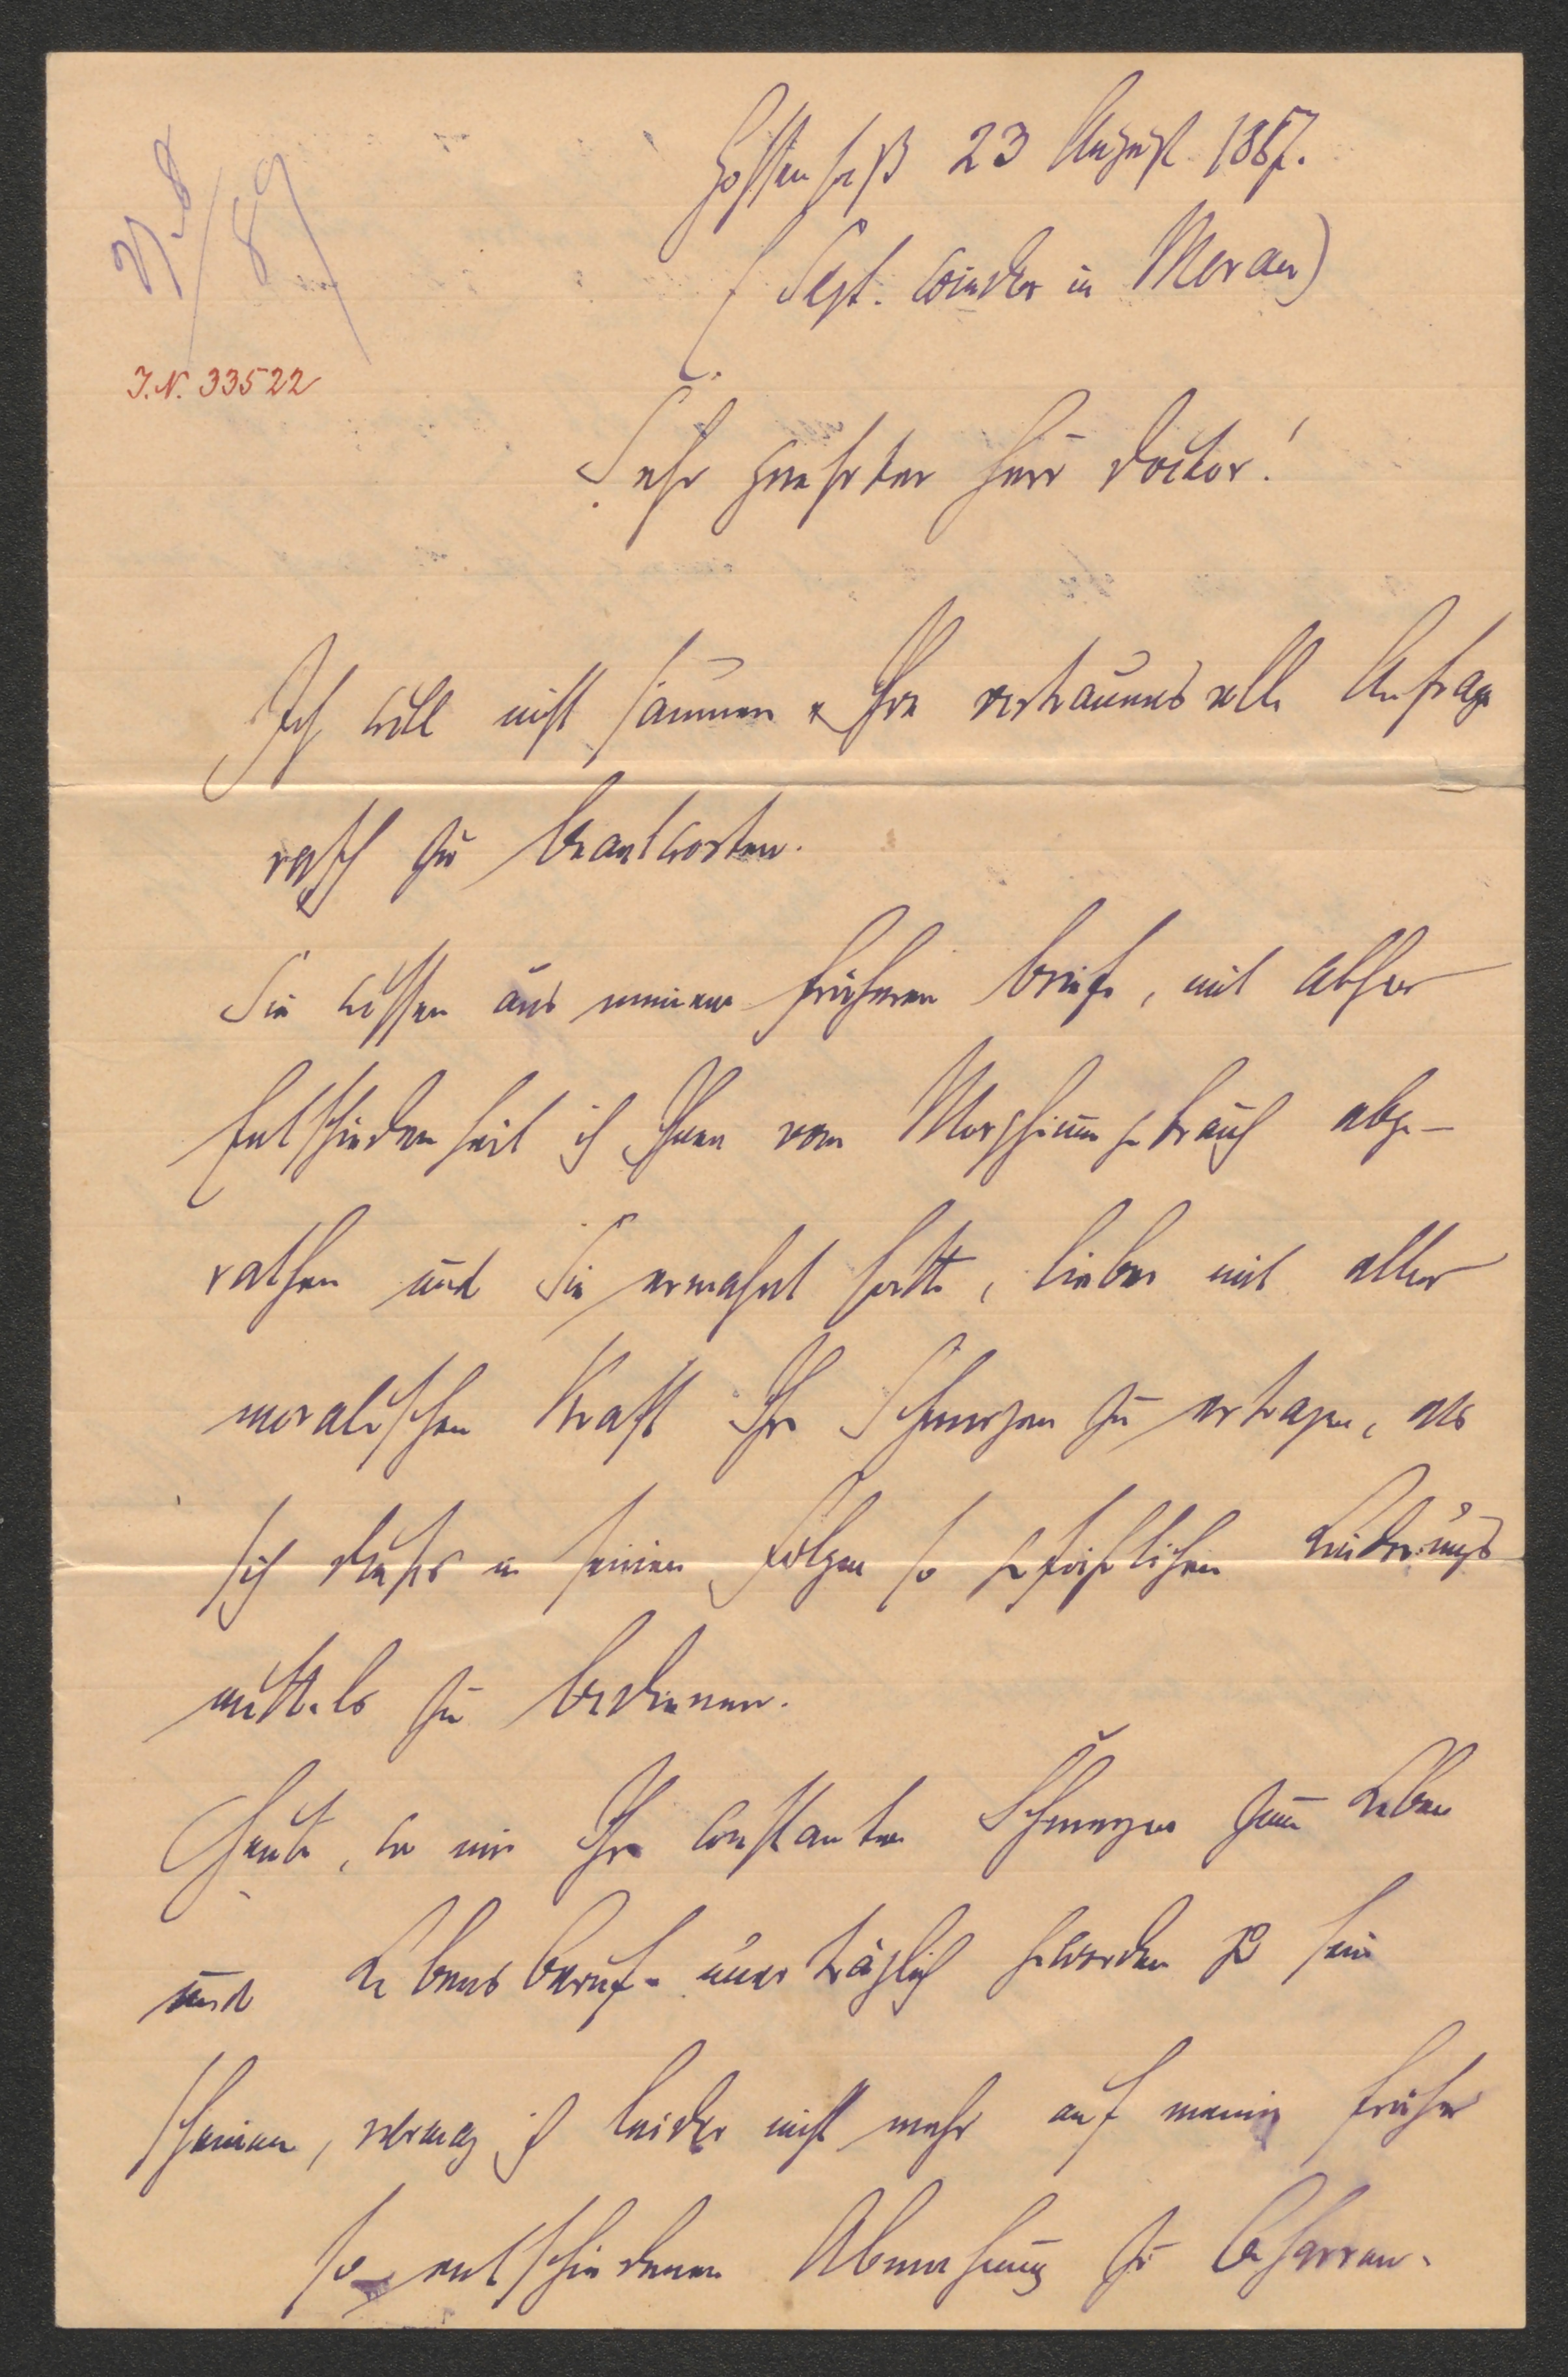 Gossensaß 23 August 1887.
(Sept. wieder in Meran)
J.N. 33522
Sehr geehrter Herr Doctor!
Ich will nicht säumen Ihre vertrauensvolle Anfrage
rasch zu beantworten.
Sie wissen aus meinem früheren Briefe, mit welcher
Entschiedenheit ich Ihnen vom Morphiumgebrauch abge-
rathen und Sie ermahnt hatte, lieber mit aller
moralischen Kraft Ihre Schmerzen zu ertragen, als
sich dieses in seinen Folgen so gefährlichen Linderungs
mittels zu bedienen.
Heute, wo mir Ihre constanten Schmerzen zum Leben
und Lebensberufe unerträglich geworden zu sein
scheinen, vermag ich leider nicht mehr auf meiner früher
so entschiedenen Abmahnung zu beharren.